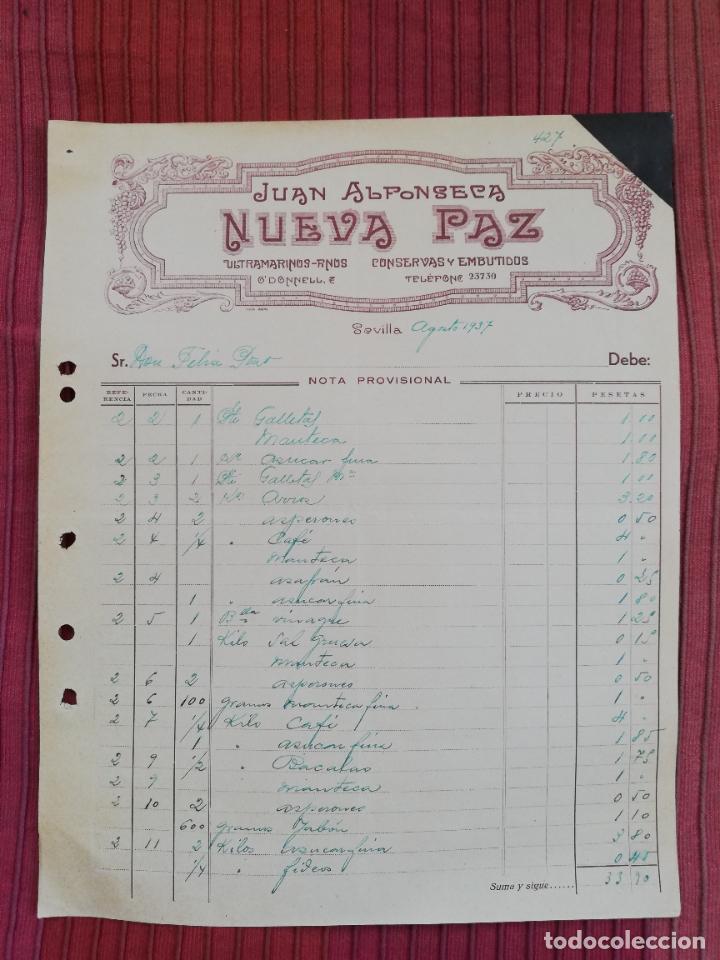 427
JUAN ALFONSECA
NUEVA PAZ
ULTRAMARINOS-FINOS CONSERVAS Y EMBUTIDOS
O'DONNELL, TELÉFONO 23730
Sevilla Agosto 1937
Sr. Don Debe:
NOTA PROVISIONAL
REFERENCIA FECHA CANTIDAD PRECIO PESETAS
2 2 1 Galletas 1 00
Manteca 1 00
2 2 1 azucar fina 1 80
2 3 1 Galletas 1 00
2 3 2 Arros 3 20
2 4 2 asperones 0 50
2 4 1/4 " Café 4 "
manteca 1 "
2 4 asafrán 0 25
1 " asucar fina 1 80
2 5 1 Blla vinagre 1 25
1 Kilo Sal Gruesa 0 15
manteca 1 "
2 6 2 asperones 0 50
2 6 100 gramos manteca fina 1 "
2 7 1/4 Kilo Café 4 "
1 " asucar fina 1 85
2 9 1/2 " Bacalao 1 75
2 9 manteca 1 "
2 10 2 asperones 0 50
600 gramos Jabón 1 10
2 11 2 Kilos Asucar fina 3 80
1/4 " fideos 0 45
Suma y sigue...... 33 90
todocoleccion
todocoleccion.net